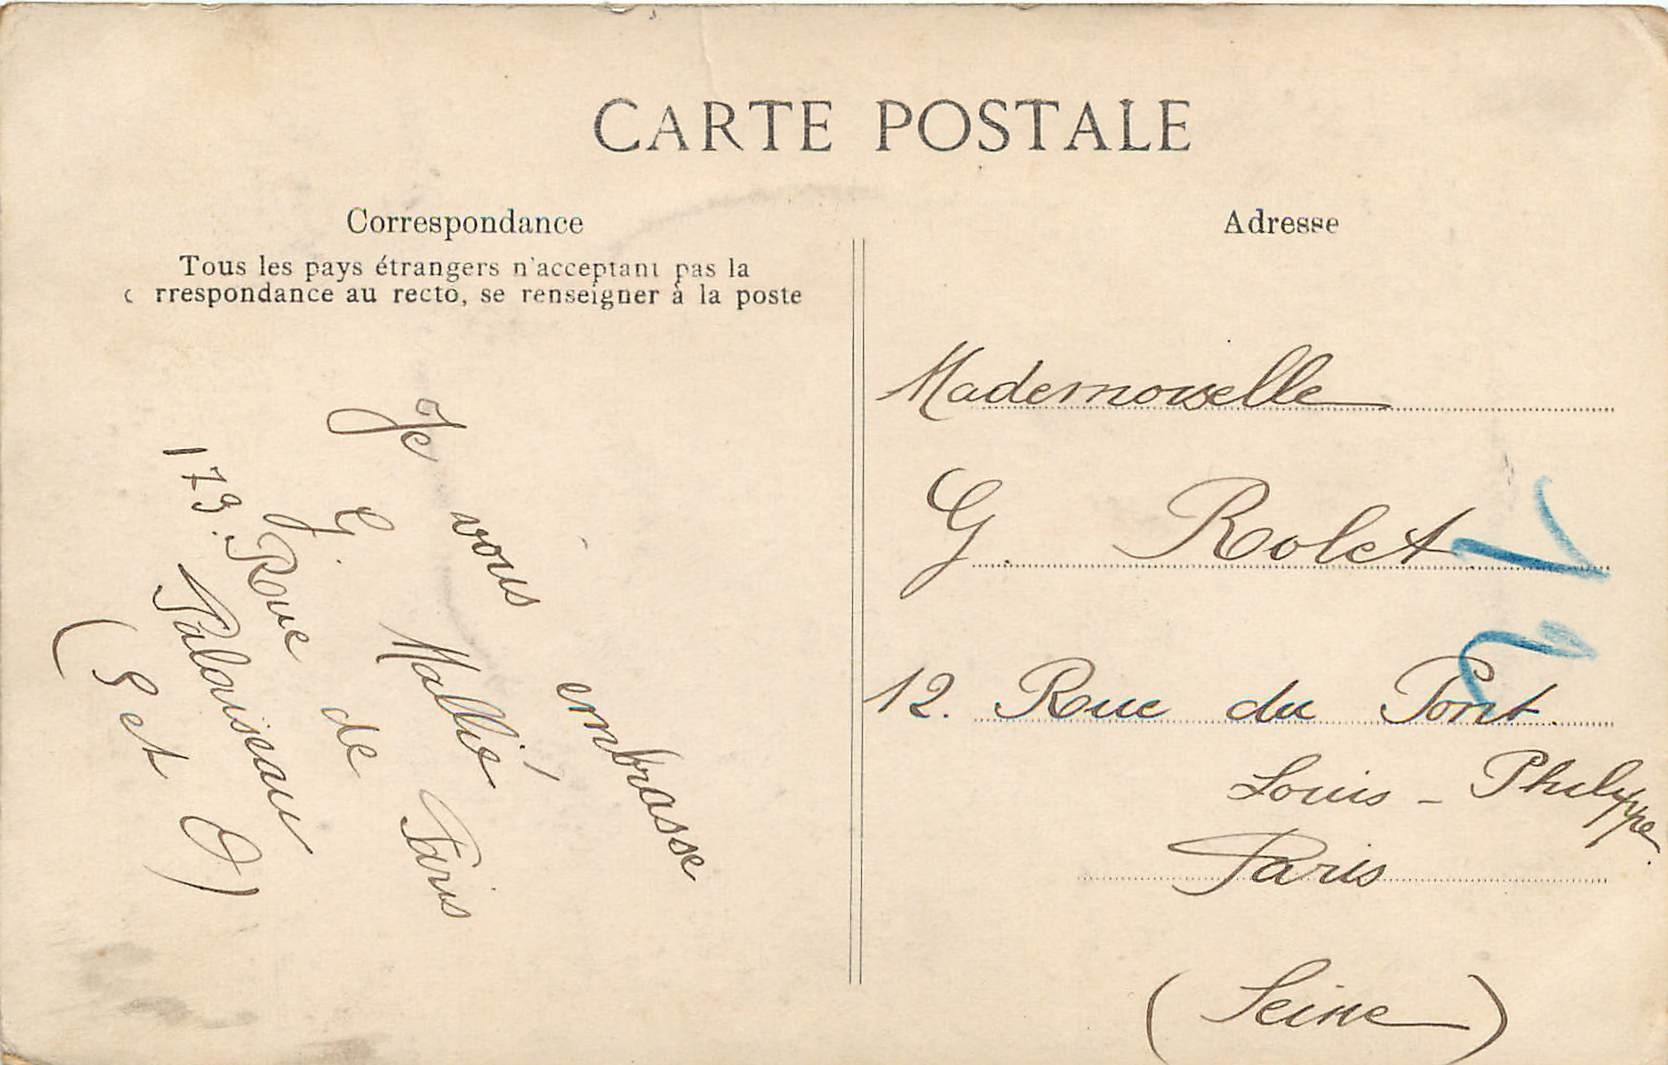 CARTE POSTALE
Correspondance
Tous les pays étrangers n'acceptant pas la
c rrespondance au recto, se renseigner à la poste
Je vous embrasse
G. Mallié
173. Rue de Paris
Palaiseau
(S et O)
Adresse
Mademoiselle
G. Rolet
12. Rue du Pont
Louis-Philippe.
Paris
(Seine)